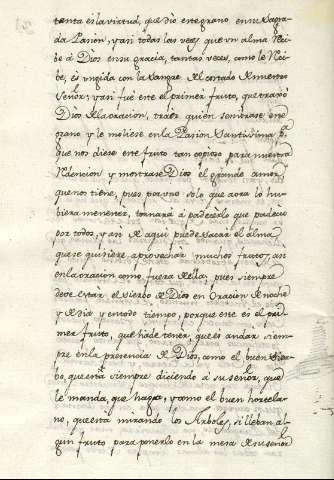 tanta es la virtud, que dio este grano en su sagra-
da Pasion, y asi todas las veces que un alma Reci-
be â Dios en su gracia, tantas veces, como le Reci-
be, es ungida con la sangre del costado de nuestro
Señor; y asi fue este el primer fruto, que traxo
Dios de la oracion, traer quien sembrase este
grano y le moliese en la Pasion Santisima pa
que nos diese este fruto tan copioso para nuestra
Redencion y mostrase Dios el grande amor,
que nos tiene, pues por uno solo que aora lo hu-
biera menester, tornará a padecerlo que padeció
por todos, y asi de aqui puede sacar el alma
que se quisiere aprovechar muchos frutos, asi
en la oracion como fuera de ella, pues siempre
debe estar el siervo de Dios en Oracion de noche
y de dia y en todo tiempo, porque este es el pri-
mer fruto, que há de tener, que es andar siem-
pre en la presencia de Dios, como el buen sier-
bo, que está siempre diciendo á su señor, que
le manda, que haga, y como el buen hortela-
no, que está mirando los Arboles, si lleban al-
gun fruto para ponerlo en la mesa de su señor